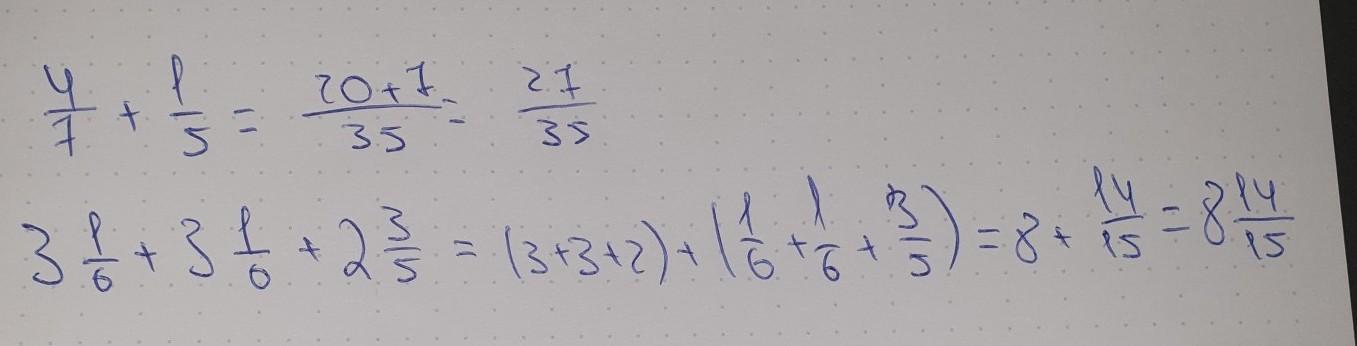 4/7 + 1/5 = (20+7)/35 = 27/35
3 1/6 + 3 1/6 + 2 3/5 = (3+3+2) + (1/6 + 1/6 + 3/5) = 8 + 14/15 = 8 14/15